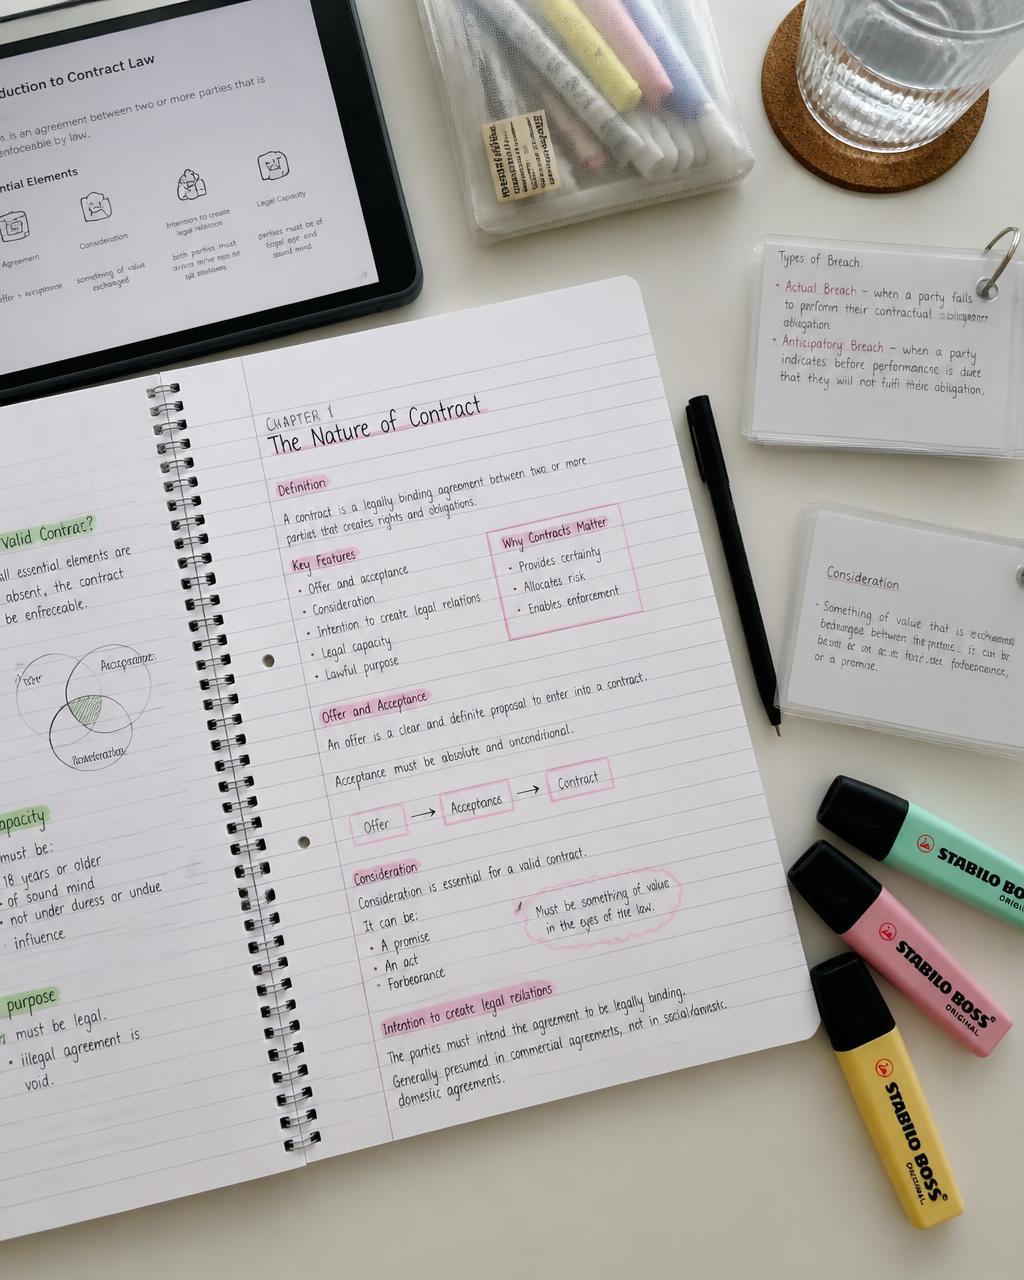 duction to Contract Law
is an agreement between two or more parties that is
enfoceable by law.
ntial Elements
Agreement
Consideration
Intention to create
legal relation
Legal Capacity
something of value
exchanged
both parties must
parties must be of
legal age and
sound mind
Types of Breach.
• Actual Breach – when a party fails
to perform their contractual
obligation
• Anticipatory Breach – when a party
indicates before performance is due
that they will not fulfil their obligation.
Consideration
• Something of value that is
between the
or a promise.
Valid Contract?
all essential elements are
absent, the contract
be enfreceable.
apacity
must be:
18 years or older
• of sound mind
• not under duress or undue
influence
purpose
must be legal.
• iilegal agreement is
void.
CHAPTER 1
The Nature of Contract
Definition
A contract is a legally binding agreement between two or more
parties that creates rights and obligations.
Key Features
• Offer and acceptance
• Consideration
• Intention to create legal relations
• Legal capacity
• Lawful purpose
Why Contracts Matter
• Provides certainty
• Allocates risk
• Enables enforcement
Offer and Acceptance
An offer is a clear and definite proposal to enter into a contract.
Acceptance must be absolute and unconditional.
Offer → Acceptance → Contract
Consideration
Consideration is essential for a valid contract.
It can be:
• A promise
• An act
• Forbearance
Must be something of value
in the eyes of the law.
Intention to create legal relations
The parties must intend the agreement to be legally binding.
Generally presumed in commercial agreements, not in social/
domestic agreements.
STABILO BO
ORIGI
STABILO BOSS
ORIGINAL
STABILO BOSS
ORIGINAL